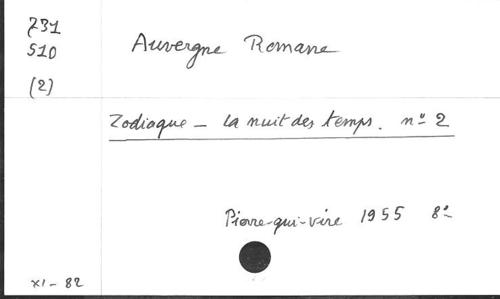 731
510
(2)
Auvergne Romane
Zodiaque - La nuit des temps. n° 2
Pierre-qui-vire 1955 8°
XI - 82